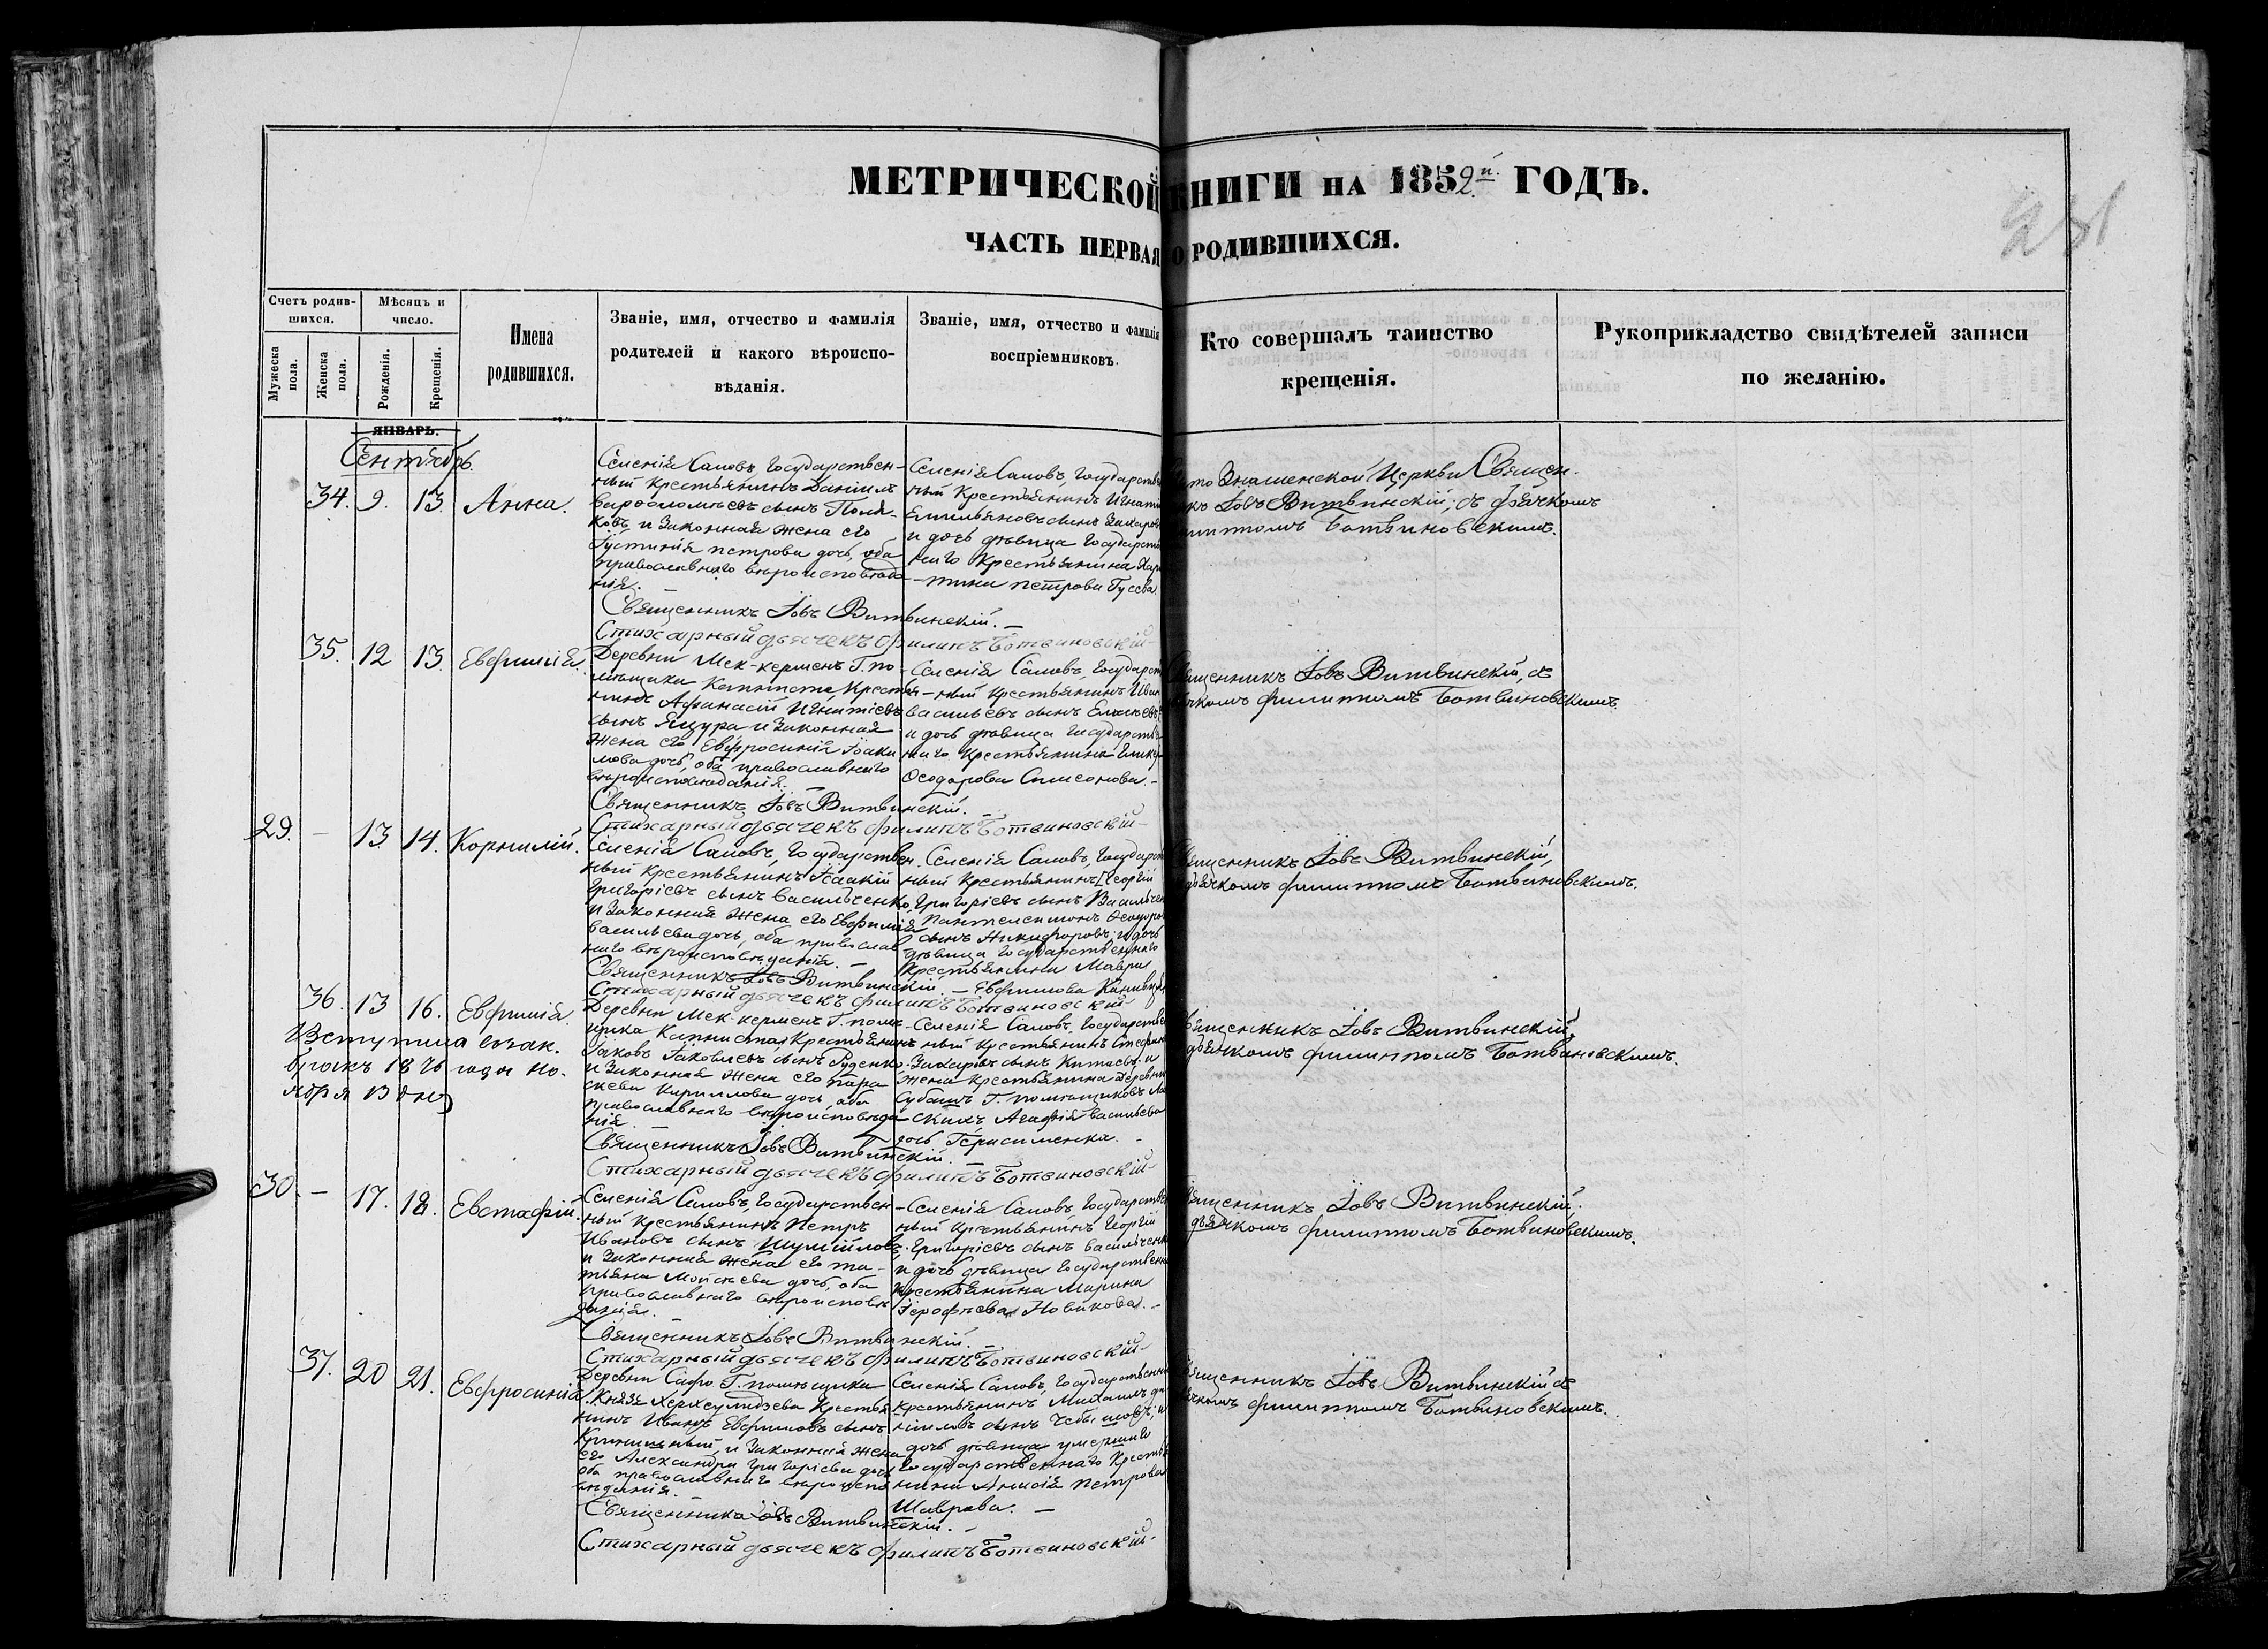 МЕТРИЧЕСКОЙ КНИГИ НА 1852й ГОДЪ.
ЧАСТЬ ПЕРВАЯ О РОДИВШИХСЯ.
231
Счетъ родив-
шихся.
Мужеска пола.
Женска пола.
Мѣсяцъ и
число.
Рожденія.
Крещенія.
Имена
родившихся.
Званіе, имя, отчество и фамилія
родителей и какого вѣроиспо-
вѣданія.
Званіе, имя, отчество и фамилія
воспріемниковъ.
Кто совершалъ таинство
крещенія.
Рукоприкладство свидѣтелей записи
по желанію.
ЯНВАРЬ.
Сентябрь.
34. 9. 13. Анна.
Селенія Саловъ, Государствен-
ный Крестьянинъ Даніилъ
варѳоломѣевъ сынъ Поля-
ковъ и Законная жена его
Іустинія петрова дочь, оба
православнаго вѣроисповѣда-
нія.
Селенія Саловъ, Государствен
ный Крестьянинъ Игнатій
Емельяновъ сынъ Захаровъ
и дочь дѣвица Государствен
наго Крестьянина Хари
-тина петрова Гусева.
Знаменской Церкви Священ-
Іовъ Витвинскій, съ дьячкомъ
Ботвиновскимъ.
Священникъ Іовъ Витвинскій.-
Стихарный дьячекъ филипъ Ботвиновскій-
35. 12 13. Евфимія.
Деревни Мек-кермень Г. по-
мѣщика Капниста, Крестья-
нинъ Афанасій Игнатіевъ
сынъ Яцура и Законная
жена его Евфросинія Іоаки
мова дочь, оба православнаго
вѣроисповѣданія.
Селенія Саловъ, Государст
-ный крестьянинъ Иван
васильевъ сынъ
и дочь дѣвица Государствен
наго Крестьянина Глике
Ѳеодорова Симеонова.-
Священникъ Іовъ Витвинскій, съ
дьячкомъ филиппомъ Ботвиновскимъ.
Священникъ Іовъ Витвинскій.
Стихарный дьячекъ филипъ Ботвиновскій-
29. - 13 14. Корнилій.
Селенія Саловъ, Государствен
ный Крестьянинъ Исаакій
Григоріевъ сынъ васильченко,
и Законная жена его Евфимія
васильева дочь, оба православ-
наго вѣроисповѣданія.-
Селенія Саловъ, Государст
ный Крестьянинъ Георгій
Григоріевъ сынъ Васильчен
Пантелеимонъ Ѳеодоров
сынъ Никифоровъ; и дочь
дѣвица Государственнаго
Крестьянина Мавра
Евфимова
Священникъ Іовъ Витвинскій,
дьячкомъ филиппомъ Ботвиновскимъ.
Священникъ Іовъ Витвинскій.-
Стихарный дьячекъ филипъ Ботвиновскій-
36. 13 16. Евфимія.
Вступила въ зак.
бракъ 1876 года но-
ября 13 дня
Деревни Мек-кермень Г. помѣ-
щика Капниста, Крестьянинъ
Іаковъ Іаковлевъ сынъ Руденко
и Законная жена его пара
скева Кириллова дочь, оба
православнаго вѣроисповѣда-
нія.
Селенія Саловъ, Государствен
ный Крестьянинъ Стефан
Захаровъ сынъ Китаевъ; и
жена Крестьянина Деревни
Субашъ Г. помѣщиковъ Ла
скихъ, Агафія васильева
дочь Герасименка.-
Священникъ Іовъ Витвинскій,
дьячкомъ филиппомъ Ботвиновскимъ.
Священникъ Іовъ Витвинскій.
Стихарный дьячекъ филипъ Ботвиновскій-
30. - 17. 18. Евстафій.
Селенія Саловъ, Государствен-
ный крестьянинъ Петръ
Ивановъ сынъ Шумиловъ,
и Законная жена его та-
тьяна Мойсеева дочь, оба
православнаго вѣроисповѣ
данія.
-Селенія Саловъ Государствен
ный Крестьянинъ Георгій
Григоріевъ сынъ васильченк
и дочь дѣвица Государственна
Крестьянина Марина
Іерофѣева Новикова.-
Священникъ Іовъ Витвинскій.
дьячкомъ филиппомъ Ботвиновскимъ.
Священникъ Іовъ Витвинскій.-
Стихарный дьячекъ филипъ Ботвиновскій-
37. 20 21. Евфросинія.
Деревни Сафо Г. помѣщика
Князя Херхеулидзева Крестья
нинъ Иванъ Евфимовъ сынъ
и Законная жена
его Александра Григоріева дочь
оба православнаго вѣроиспо
вѣданія.
Селенія Саловъ, Государственны
крестьянинъ Михаилъ да
ніиловъ сынъ и
дочь дѣвица умершаго
Государственнаго Крестья
нина Анисія петрова
Шаврова.-
Священникъ Іовъ Витвинскій съ
дьячкомъ филиппомъ Ботвиновскимъ.
Священникъ Іовъ Витвинскій.-
Стихарный дьячекъ филипъ Ботвиновскій-